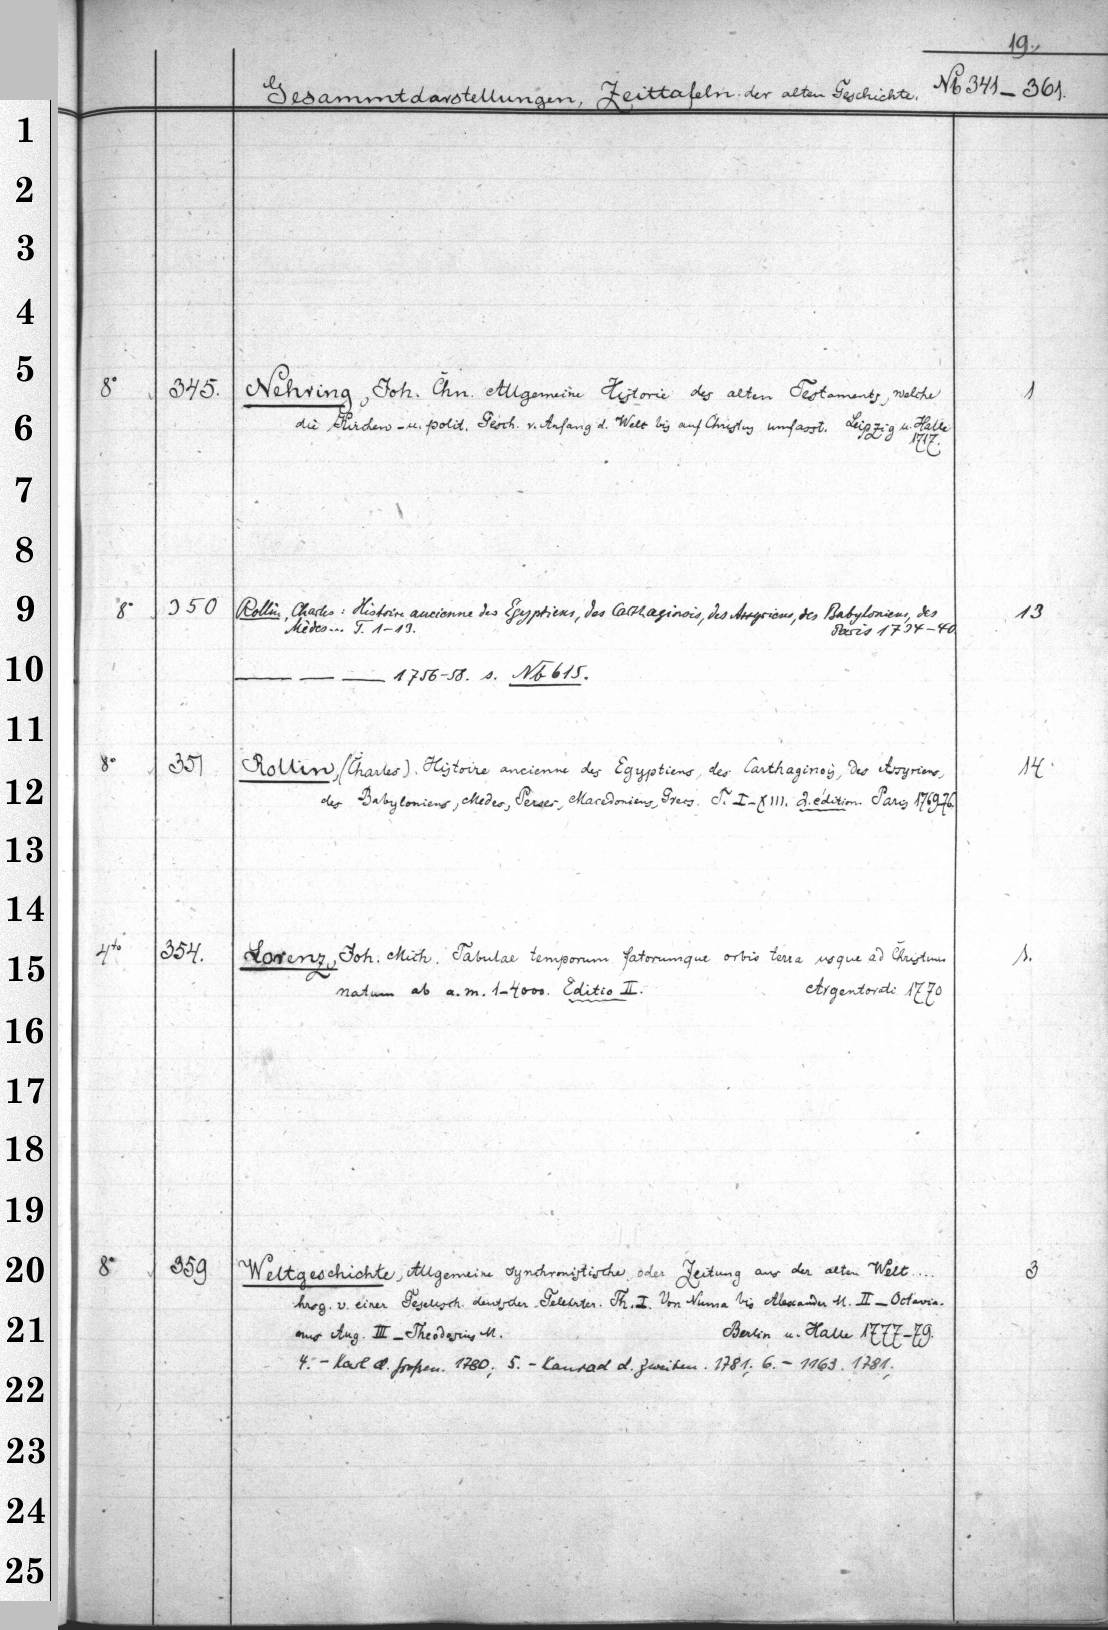 19.
Gesammtdarstellungen, Zeittafeln der alten Geschichte. Nb 341–361.
1
2
3
4
5
8° 345. Nehring, Joh. Chn. Allgemeine Historie des alten Testaments, welche 1
6
die Kirchen- u. polit. Gesch. v. Anfang d. Welt bis auf Christus umfasst. Leipzig u. Halle
1717.
7
8
9
8° 350 Rollin, Charles: Histoire ancienne des Egyptiens, des Carthaginois, des Assyriens, des Babyloniens, des 13
Mèdes... T. 1–13. Paris 1734–40.
10
——— — —— 1756–58. s. Nb 615.
11
8° 351 Rollin, (Charles). Histoire ancienne des Egyptiens, des Carthaginois, des Assyriens, 14
12
des Babyloniens, Medes, Perses, Macedoniens, Grecs. T. I–XIII. 2. édition. Paris 1769-76.
13
14
4to 354. Lorenz, Joh. Mich. Tabulae temporum fatorumque orbis terra usque ad Christum 1.
15
natum ab a. m. 1–4000. Editio II. Argentorati 1770
16
17
18
19
20
8° 359 Weltgeschichte, Allgemeine synchronistische, oder Zeitung aus der alten Welt .... 3
hrsg. v. einer Gesellsch. deutscher Gelehrter. Th. I. Von Numa bis Alexander M. II – Octavia-
21
nus Aug. III – Theodosius M. Berlin u. Halle 1777–79.
4. – Karl d. großen. 1780; 5. – Konrad d. zweiten. 1781; 6. – 1163. 1781;
22
23
24
25